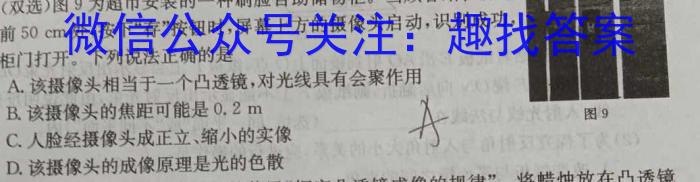 (双选)图9为超市安装的一种刷脸自动储物柜。
前50 cm 按下“存”按钮时,屏幕上方的摄像头启动,识别成功
微信公众号关注:趣找答案
柜门打开。下列说法正确的是
A.该摄像头相当于一个凸透镜,对光线具有会聚作用
B.该摄像头的焦距可能是0.2 m
C.人脸经摄像头成正立、缩小的实像
D.该摄像头的成像原理是光的色散
A
图9
凸透镜成像的规律”,将蜡烛放在凸透镜